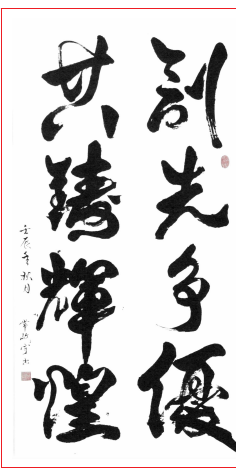 创先争優
共鑄輝煌
壬辰年秋月